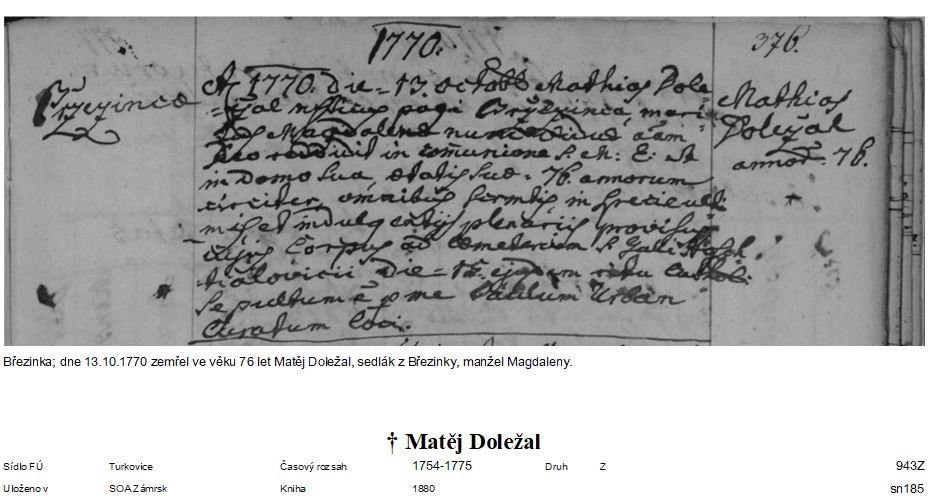 1770.
376.
Brzezince
A 1770. die 13. octobr Mathias Dole=
=zal rusticus pagi Brzezinca, mari
tus Magdalene nunc vidue a&am
Deo reddidit in comunione S. M: E: et
in domo sua, etatis sue 76. annorum
circiter, omnibus Srmtis in specie ulti
mis et indulgentiis plenariis provisus
cujus Corpus ad cemeterium S. Galli
die 15 ejusdem ritu Cathol:
Sepultum e p me Paulum Urban
Curatum loci.
Mathias
Doležal
annor: 76.
Březinka; dne 13.10.1770 zemřel ve věku 76 let Matěj Doležal, sedlák z Březinky, manžel Magdaleny.
† Matěj Doležal
Sídlo FÚ Turkovice Časový rozsah 1754-1775 Druh Z 943Z
Uloženo v SOA Zámrsk Kniha 1880 sn185